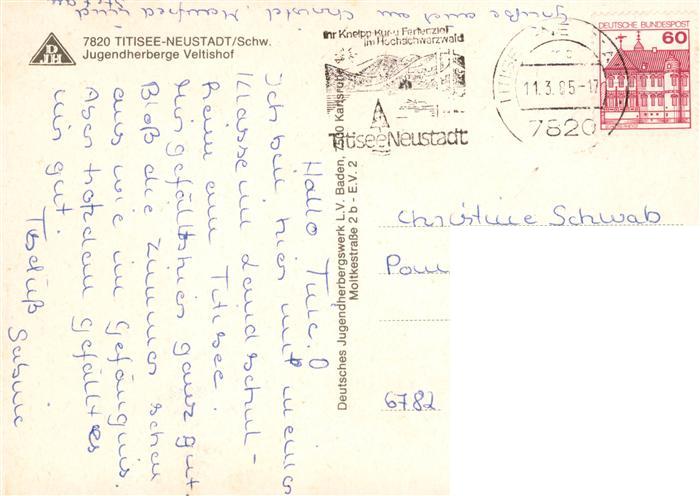 DJH
7820 TITISEE-NEUSTADT/Schw.
Jugendherberge Veltishof
Grüße auch an Christel, Manfred und
Stefan
Hallo
Ich bin hier mit meiner
Klasse im Landschul-
heim am Titisee.
Mir gefällts hier ganz gut.
Bloß die Zimmer schau
aus wie im Gefängnis.
Aber trotzdem gefällt es
mir gut.
Tschüß
Sabine
Deutsches Jugendherbergswerk L.V. Baden, 7500 Karlsruhe 1,
Moltkestraße 2 b - E.V. 2
Ihr Kneipp-Kur-u Ferienziel
im Hochschwarzwald
Titisee Neustadt
11.3.85-17
7820
DEUTSCHE BUNDESPOST
60
Christine Schwab
6782